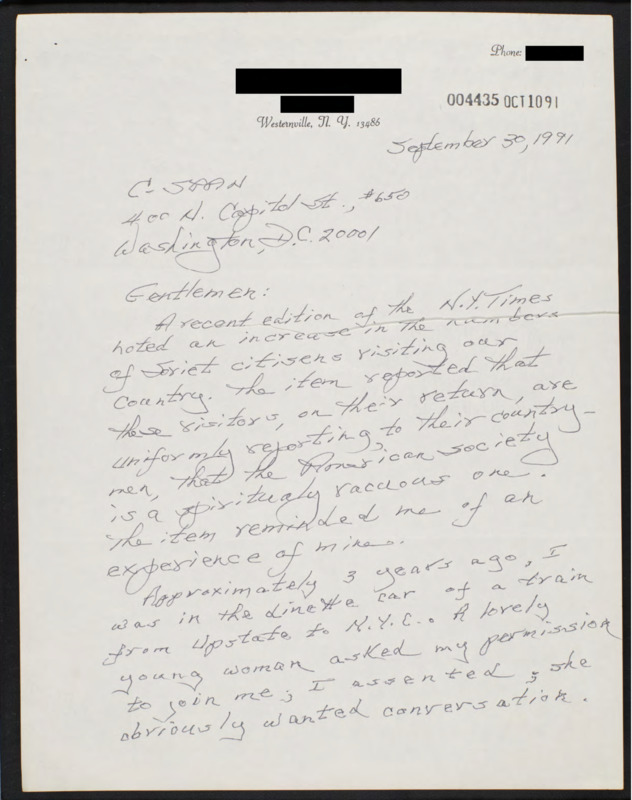 Phone:
Westernville, N. Y. 13486
004435 OCT1091
September 30, 1991
C-SPAN
400 N. Capitol St., #650
Washington, D.C. 20001
Gentlemen:
A recent edition of the N.Y. Times
noted an increase in the numbers
of Soviet citizens visiting our
country. The item reported that
these visitors, on their return, are
uniformly reporting, to their country-
men, that the American society
is a spiritualy vacuous one.
The item reminded me of an
experience of mine.
Approximately 3 years ago, I
was in the dinette car of a train
from Upstate to N.Y.C.. A lovely
young woman asked my permission
to join me; I assented; she
obviously wanted conversation.